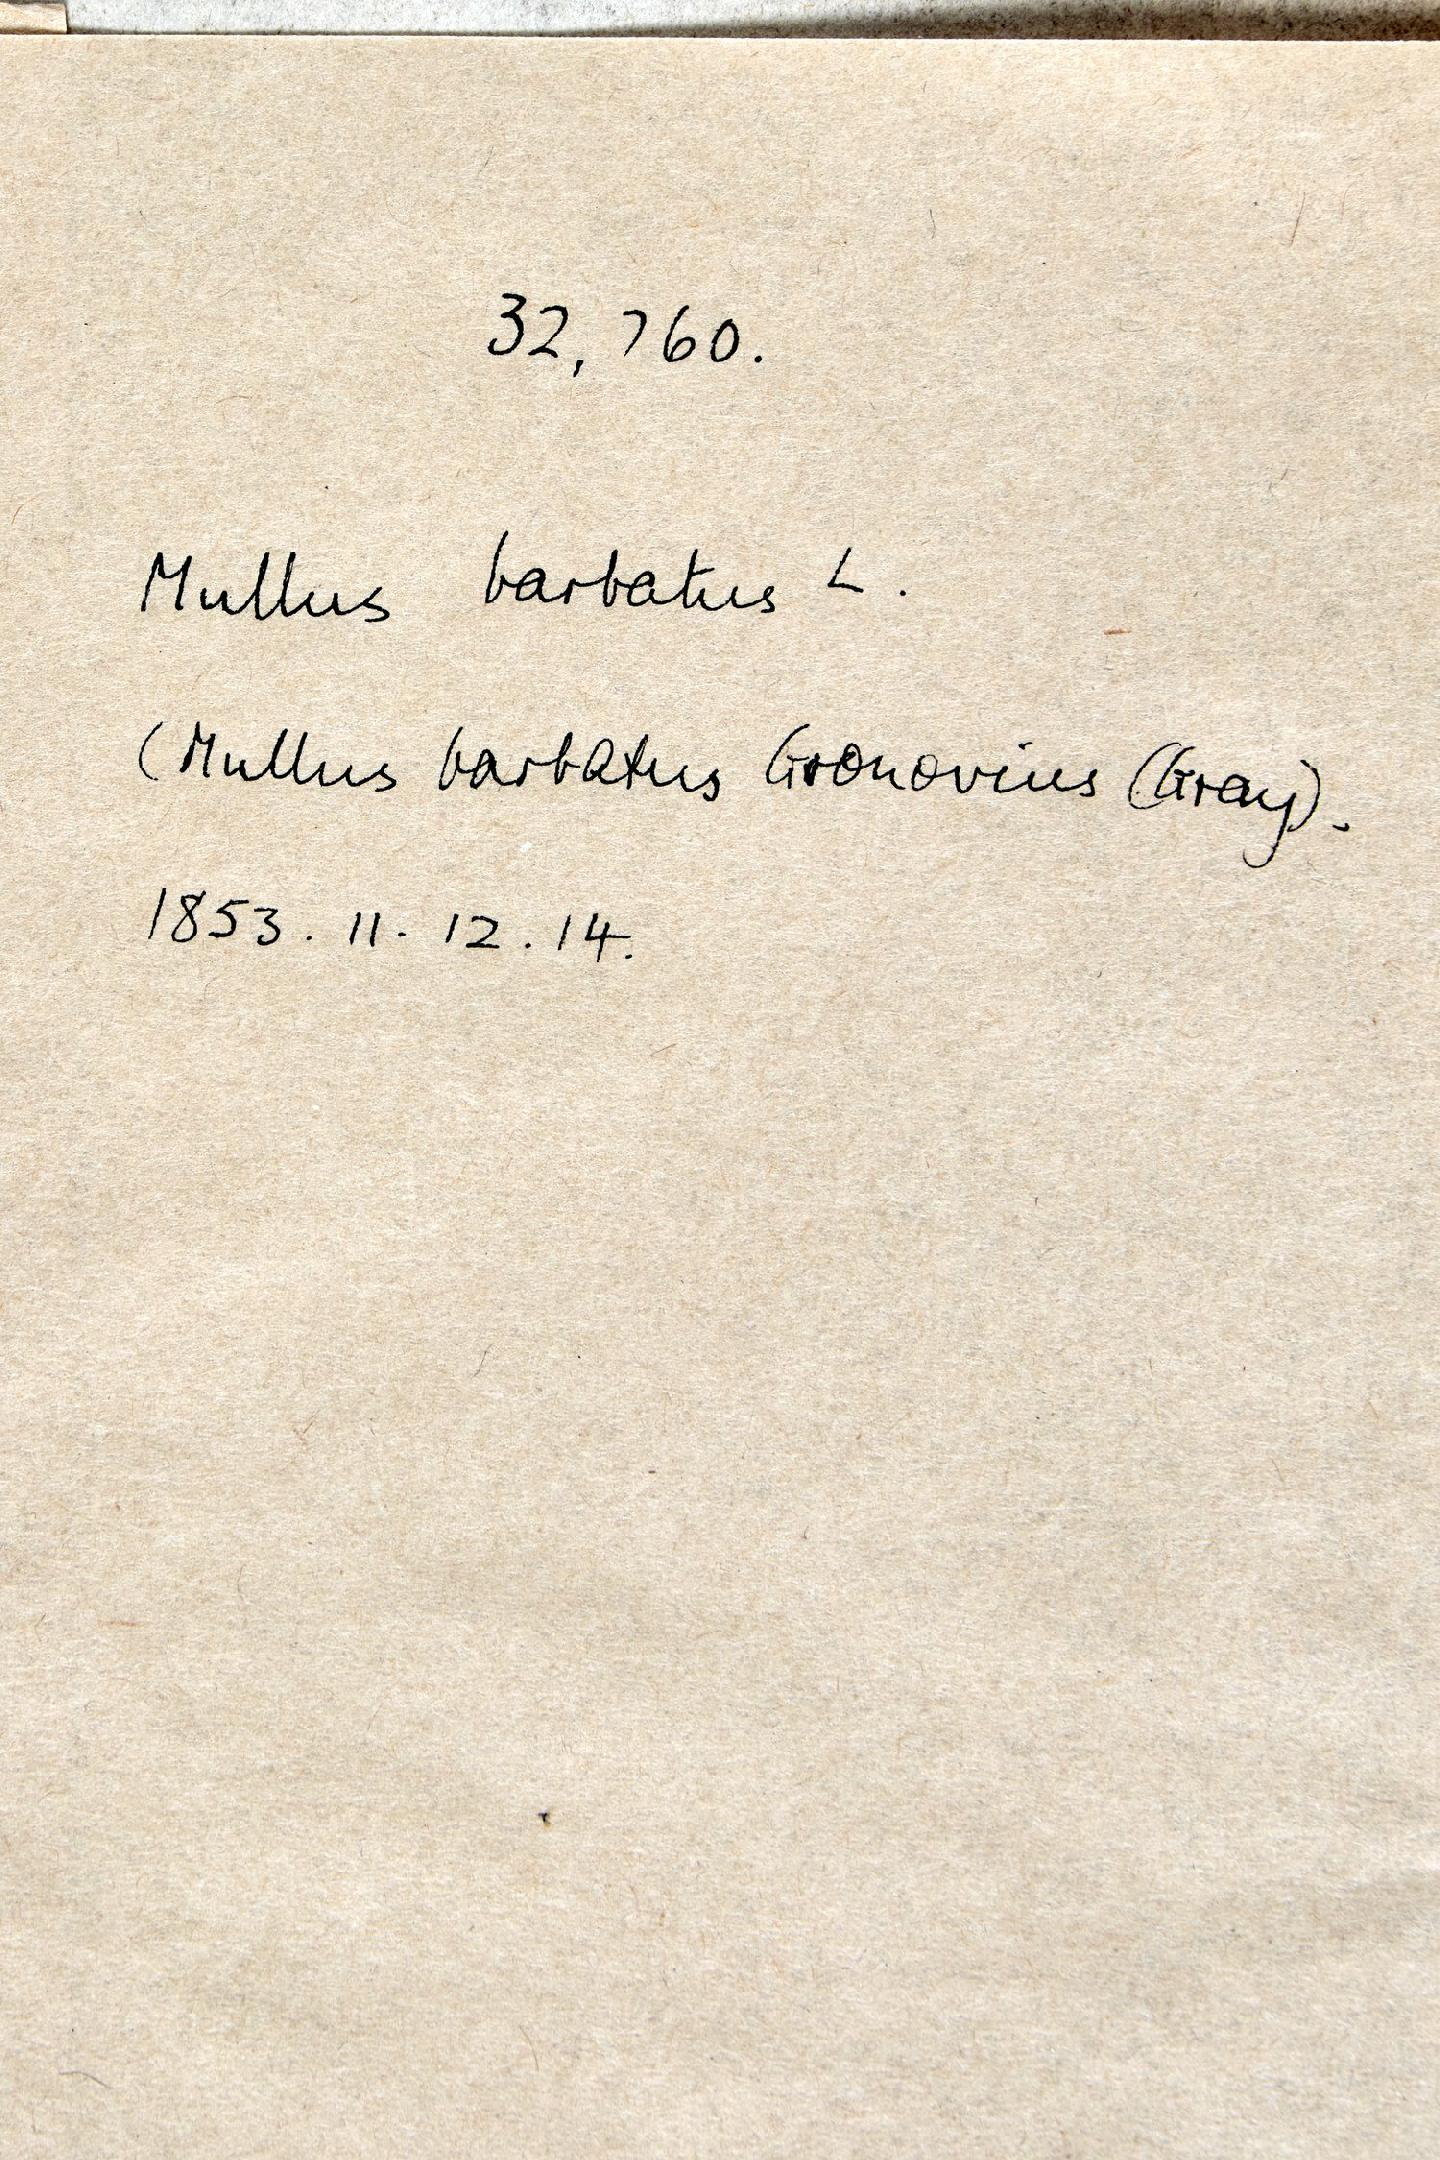 32,760.
Mullus barbatus L.
(Mullus barbatus Gronovius (Gray).
1853. 11. 12. 14.